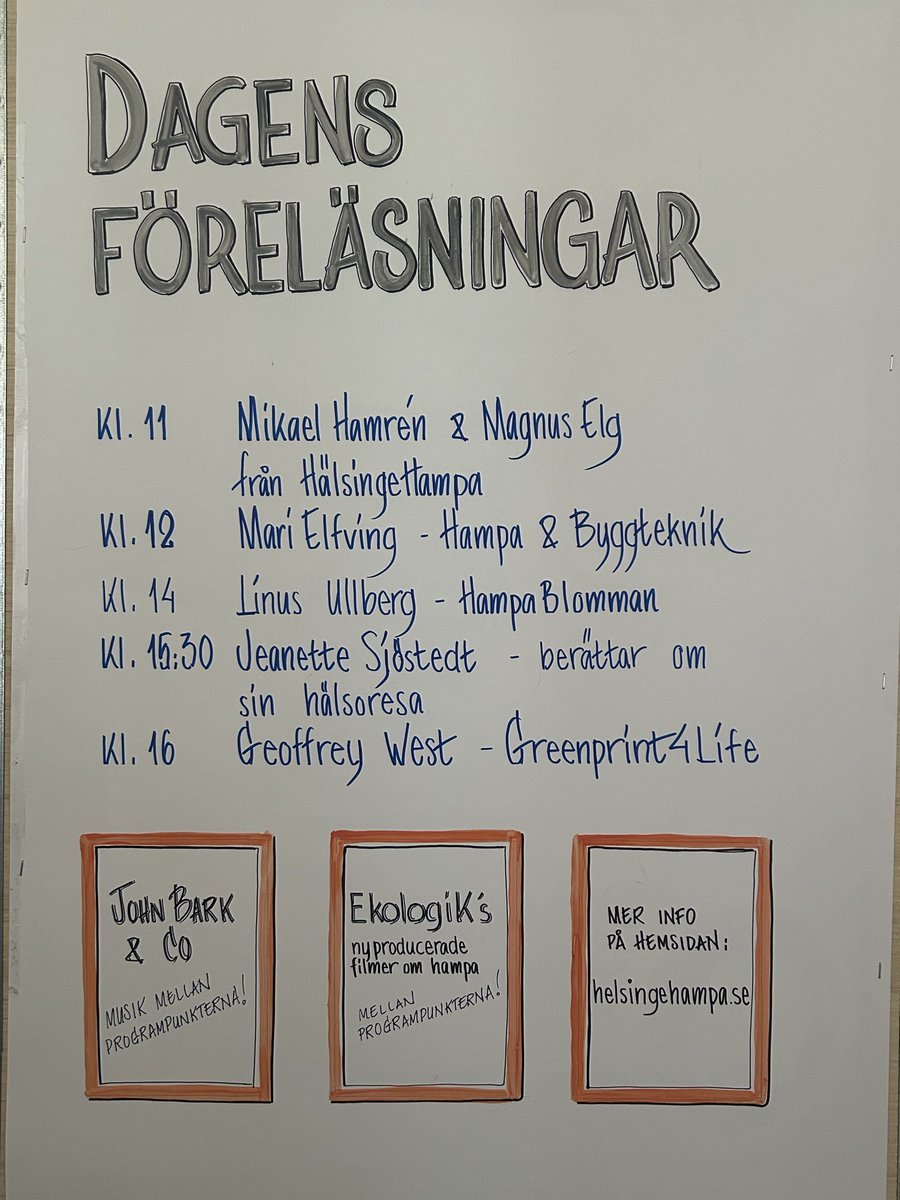 DAGENS
FÖRELÄSNINGAR
Kl. 11 Mikael Hamrén & Magnus Elg
från HälsingeHampa
Kl. 12 Mari Elfving - Hampa & Byggteknik
Kl. 14 Linus Ullberg - HampaBlomman
Kl. 15:30 Jeanette Sjöstedt - berättar om
sin hälsoresa
Kl. 16 Geoffrey West - Greenprint4Life
JOHN BARK
& CO
MUSIK MELLAN
PROGRAMPUNKTERNA!
EkologiK's
nyproducerade
filmer om hampa
MELLAN
PROGRAMPUNKTERNA!
MER INFO
PÅ HEMSIDAN:
helsingehampa.se